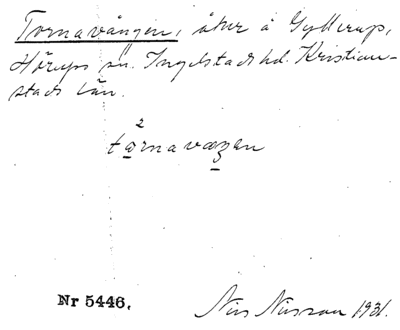 Tornavången, åker å Gyllerup,
Hörups sn. Ingelstads hd. Kristian-
stads län.
2
tornavæŋen
Nr 5446.
Nils Nilsson 1931.